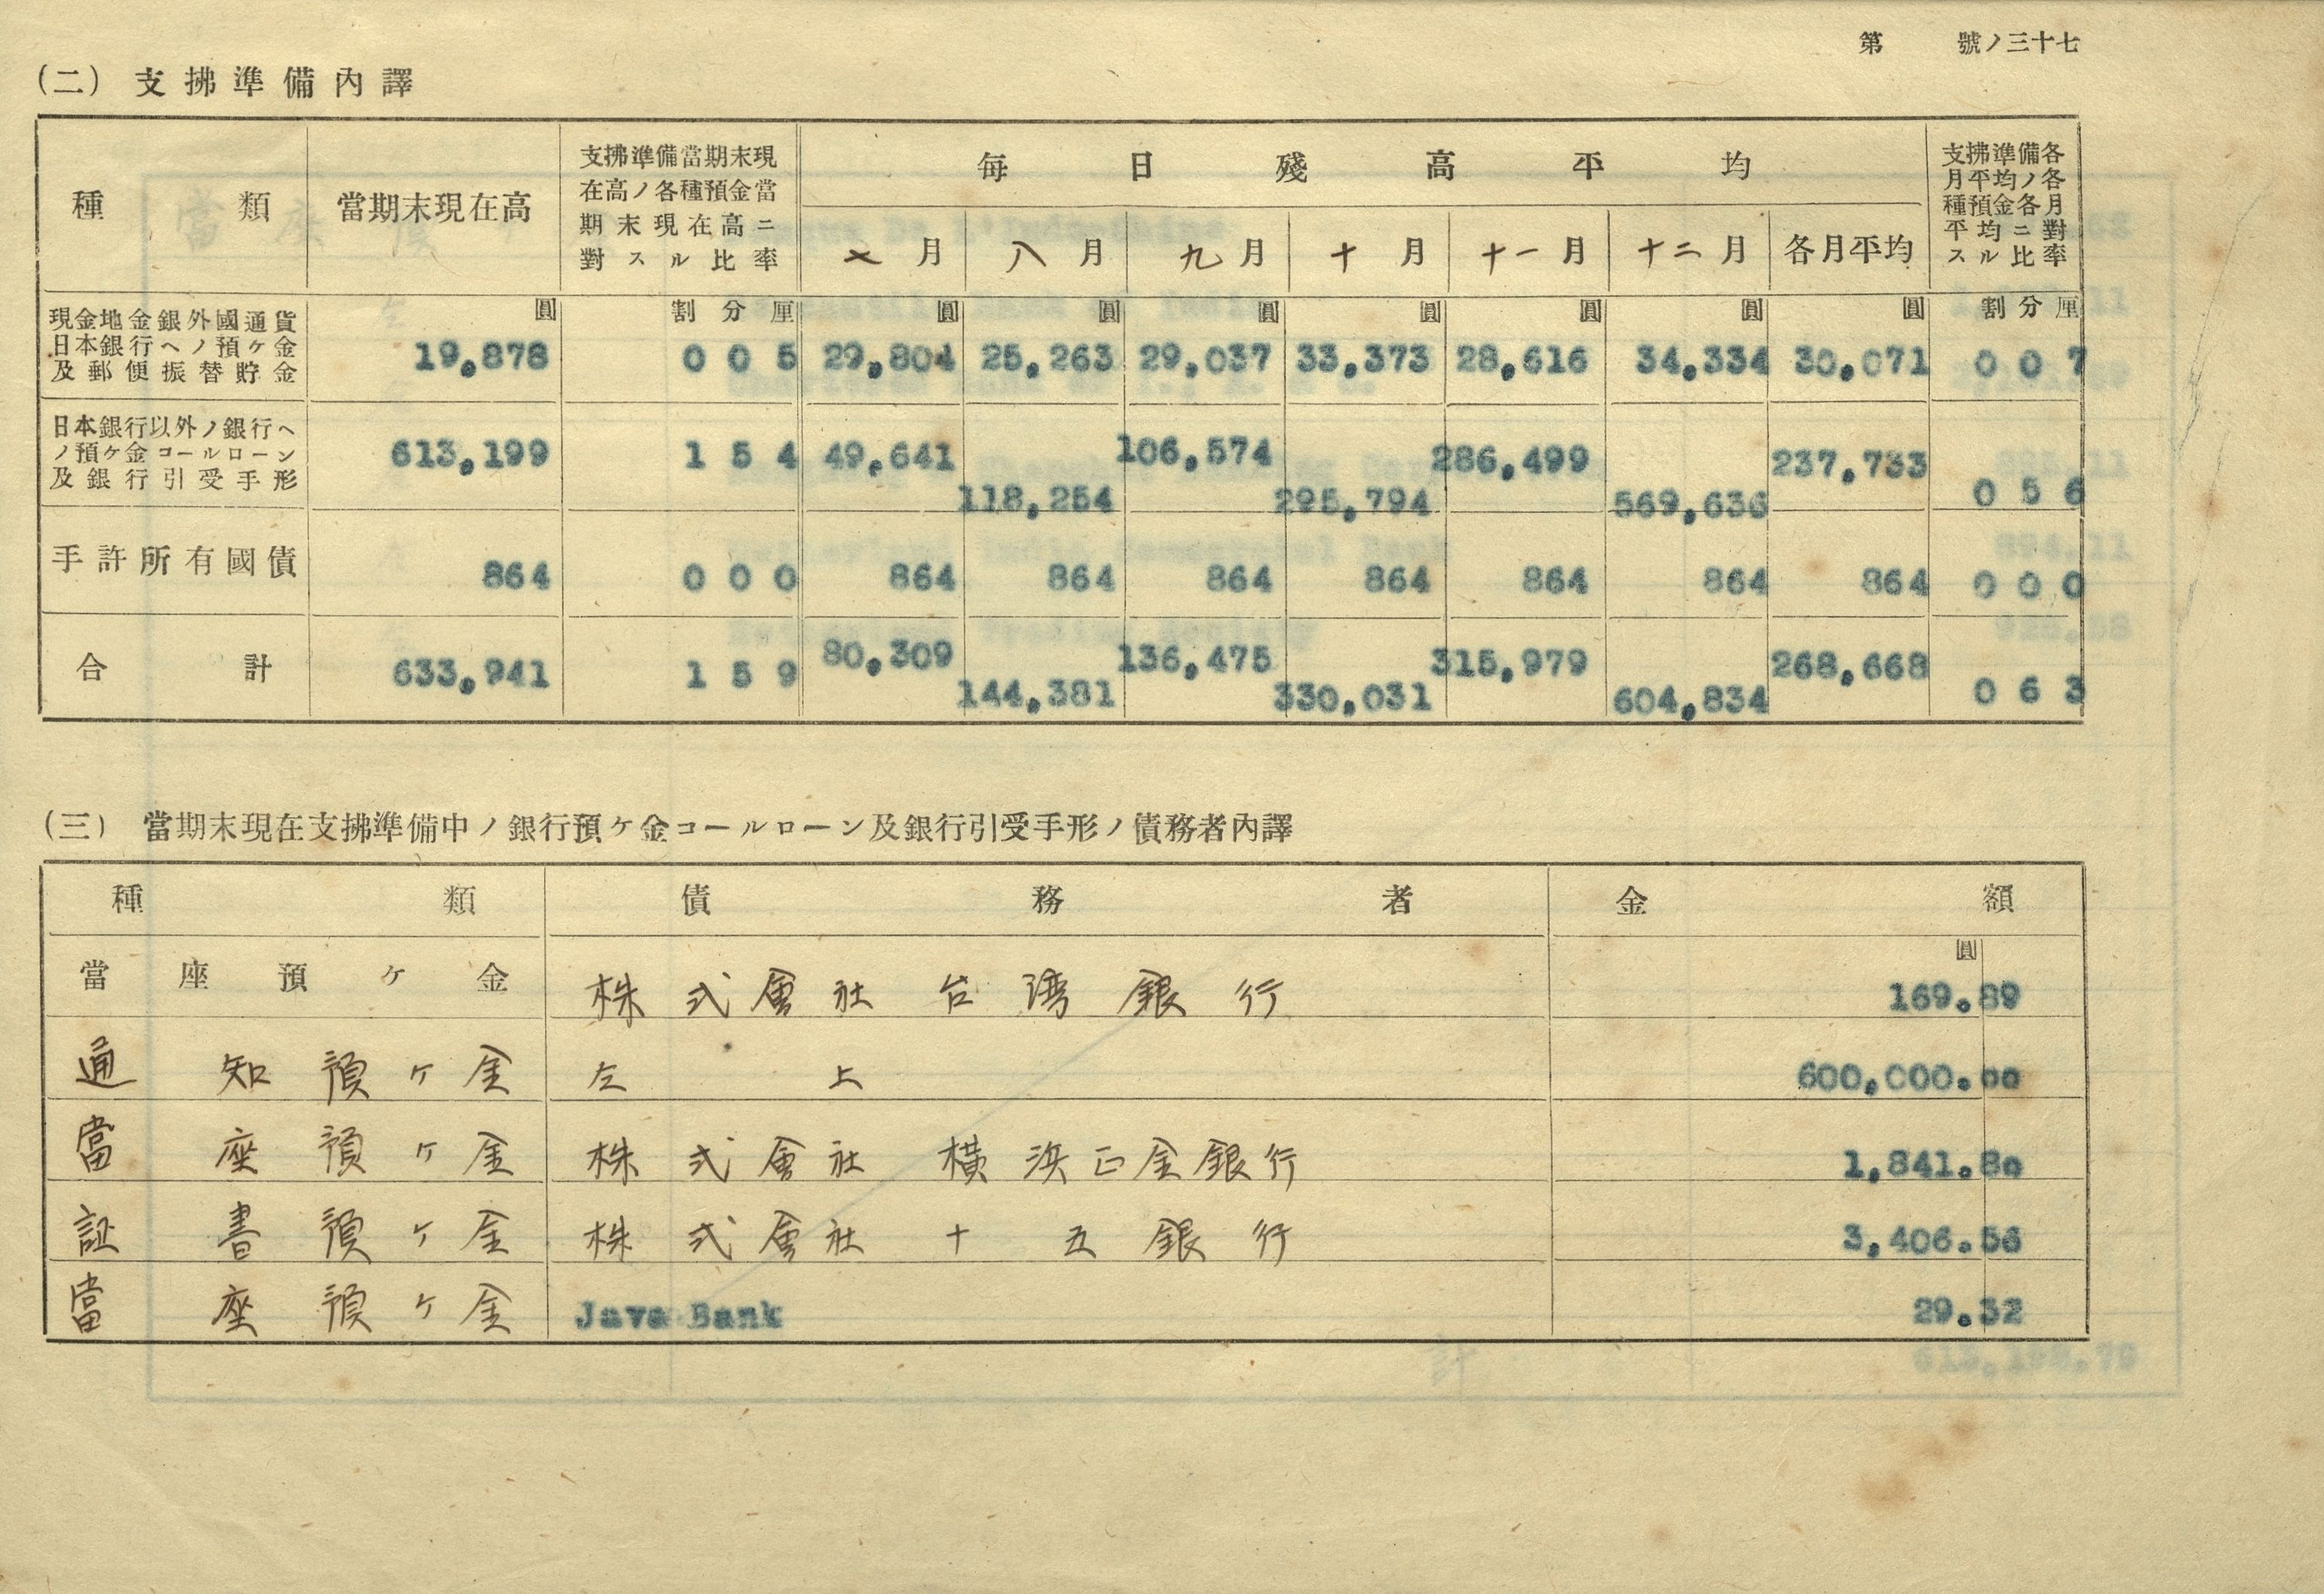 第 號ノ三十七
(二) 支拂準備內譯
種類 當期末現在高 支拂準備當期末現在高ノ各種預金當期末現在高ニ對スル比率 每日殘高平均 支拂準備各月平均ノ各種預金各月平均ニ對スル比率
七月 八月 九月 十月 十一月 十二月 各月平均
圓 割分厘 圓 圓 圓 圓 圓 圓 圓 割分厘
現金地金銀外國通貨
日本銀行ヘノ預ケ金
及郵便振替貯金
19,878 0 0 5 29,804 25,263 29,037 33,373 28,616 34,334 30,071 0 0 7
日本銀行以外ノ銀行ヘ
ノ預ケ金コールローン
及銀行引受手形
613,199 1 5 4 49,641 118,254 106,574 295,794 286,499 569,636 237,733 0 5 6
手許所有國債 864 0 0 0 864 864 864 864 864 864 864 0 0 0
合計 633,941 1 5 9 80,309 144,381 136,475 330,031 315,979 604,834 268,668 0 6 3
(三) 當期末現在支拂準備中ノ銀行預ケ金コールローン及銀行引受手形ノ債務者內譯
種類 債務者 金額
圓
當座預ケ金 株式會社台湾銀行 169.89
通知預ケ金 仝上 600,000.00
當座預ケ金 株式會社橫浜正金銀行 1,841.80
証書預ケ金 株式會社十五銀行 3,406.56
當座預ケ金 Java Bank 29.32